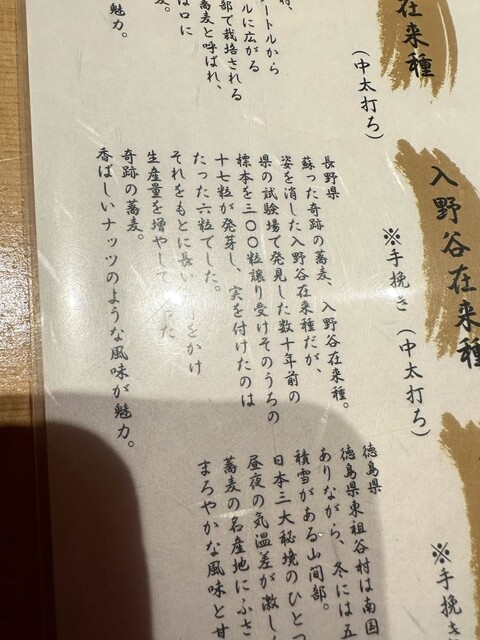 在来種
（中太打ち）
村、
ートルから
ルに広がる
部で栽培される
蕎麦と呼ばれ、
は口に
魅力。
入野谷在来種
※手挽き（中太打ち）
長野県
蘇った奇跡の蕎麦、入野谷在来種。
姿を消した入野谷在来種だが、
県の試験場で発見した数十年前の
標本を三〇〇粒譲り受けそのうちの
十七粒が発芽し、実を付けたのは
たった六粒でした。
それをもとに長い をかけ
生産量を増やして った
奇跡の蕎麦。
香ばしいナッツのような風味が魅力。
※手挽き
徳島県
徳島県東祖谷村は南国
ありながら、冬には五
積雪がある山間部。
日本三大秘境のひとつ
昼夜の気温差が激し
蕎麦の名産地にふさ
まろやかな風味と甘